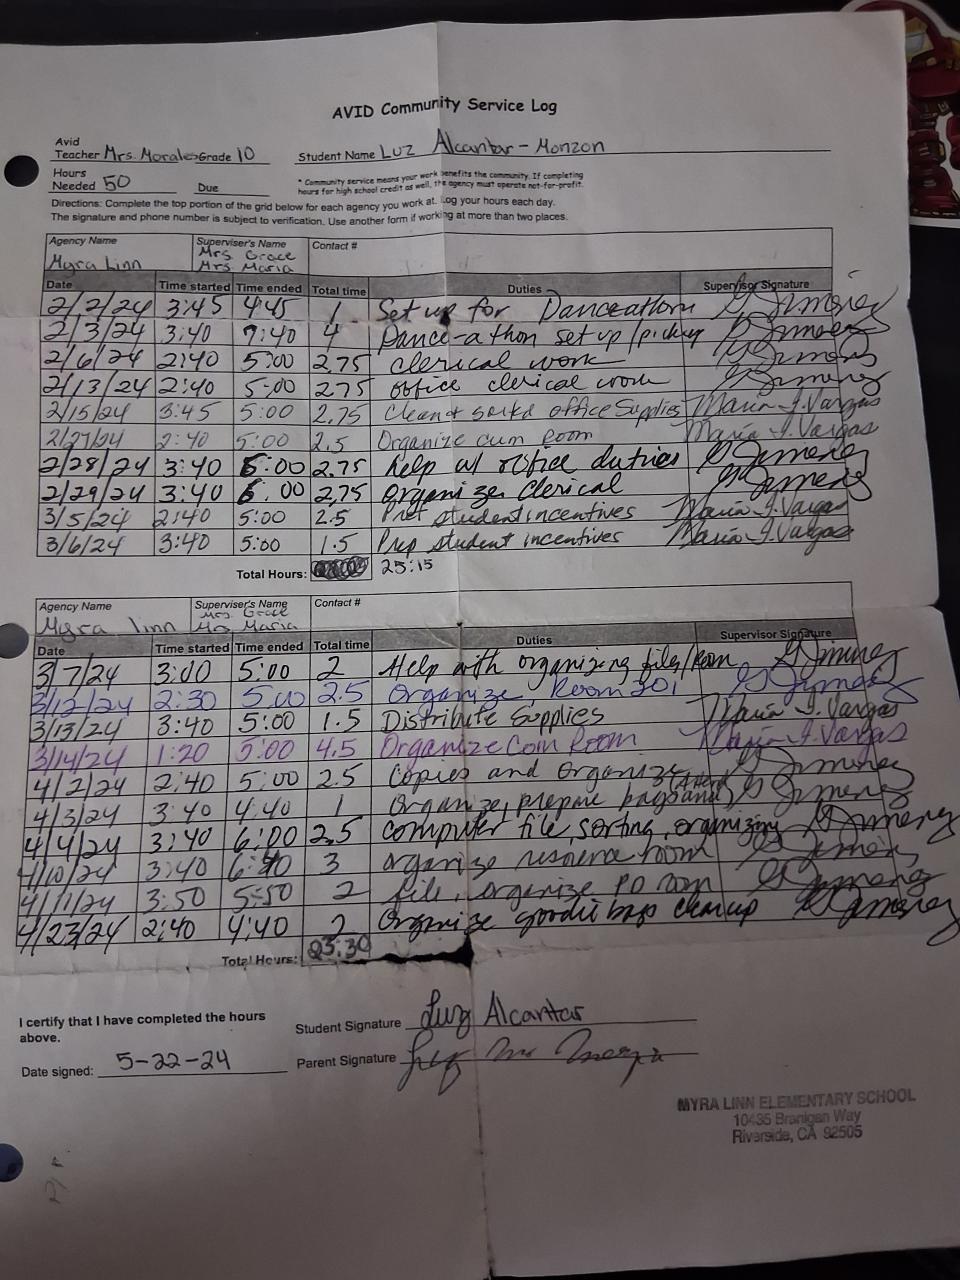 AVID Community Service Log
Avid
Teacher Mrs. Morales Grade 10 Student Name Luz Alcantar - Monzon
Hours
Needed 50 Due
* Community service means your work benefits the community. If completing
hours for high school credit as well, the agency must operate not-for-profit.
Directions: Complete the top portion of the grid below for each agency you work at. Log your hours each day.
The signature and phone number is subject to verification. Use another form if working at more than two places.
Agency Name Superviser's Name Contact #
Myra Linn Mrs. Grace
Mrs Maria
Date Time started Time ended Total time Duties Supervisor Signature
2/2/24 3:45 4:45 1 Set up for Danceathon G Jimenez
2/3/24 3:40 7:40 4 Dance-a thon set up/pickup G Jimenez
2/6/24 2:40 5:00 2.75 clerical work G Jimenez
2/13/24 2:40 5:00 2.75 office clerical work G Jimenez
2/15/24 3:45 5:00 2.75 Clean & office Supplies Maria I. Vargas
2/27/24 2:40 5:00 2.5 Organize cum Room Maria I. Vargas
2/28/24 3:40 6:00 2.75 help w/ office duties G Jimenez
2/29/24 3:40 6:00 2.75 organize clerical G Jimenez
3/5/24 2:40 5:00 2.5 student incentives Maria I. Vargas
3/6/24 3:40 5:00 1.5 Prep student incentives Maria I. Vargas
Total Hours: 25:15
Agency Name Superviser's Name Contact #
Myra linn Mrs. Grace
Mrs Maria
Date Time started Time ended Total time Duties Supervisor Signature
3/7/24 3:00 5:00 2 Help with organizing files/Room G Jimenez
3/12/24 2:30 5:00 2.5 Organize, Room 201 G Jimenez
3/13/24 3:40 5:00 1.5 Distribute Supplies Maria I. Vargas
3/14/24 1:20 5:00 4.5 Organize Com Room Maria I. Vargas
4/2/24 2:40 5:00 2.5 Copies and Organize G Jimenez
4/3/24 3:40 4:40 1 Organize, prepare bags and G Jimenez
4/4/24 3:40 6:00 2.5 computer file, sorting, organizing G Jimenez
4/10/24 3:40 6:40 3 organize resource room G Jimenez
4/11/24 3:50 5:50 2 file, organize PD room G Jimenez
4/23/24 2:40 4:40 2 Organize goodie bags cleanup G Jimenez
Total Hours: 25:30
I certify that I have completed the hours
above.
Student Signature Luz Alcantar
Date signed: 5-22-24 Parent Signature
MYRA LINN ELEMENTARY SCHOOL
10435 Branigan Way
Riverside, CA 92505